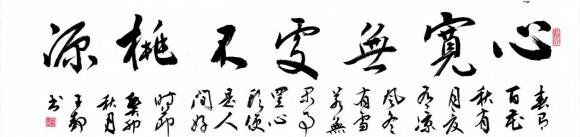 心寬無處不桃源
春有
百花
秋有
月夏
有涼
風冬
有雪
若無
閑事
罣心
頭便
是人
間好
時節
癸卯
秋月
王
書